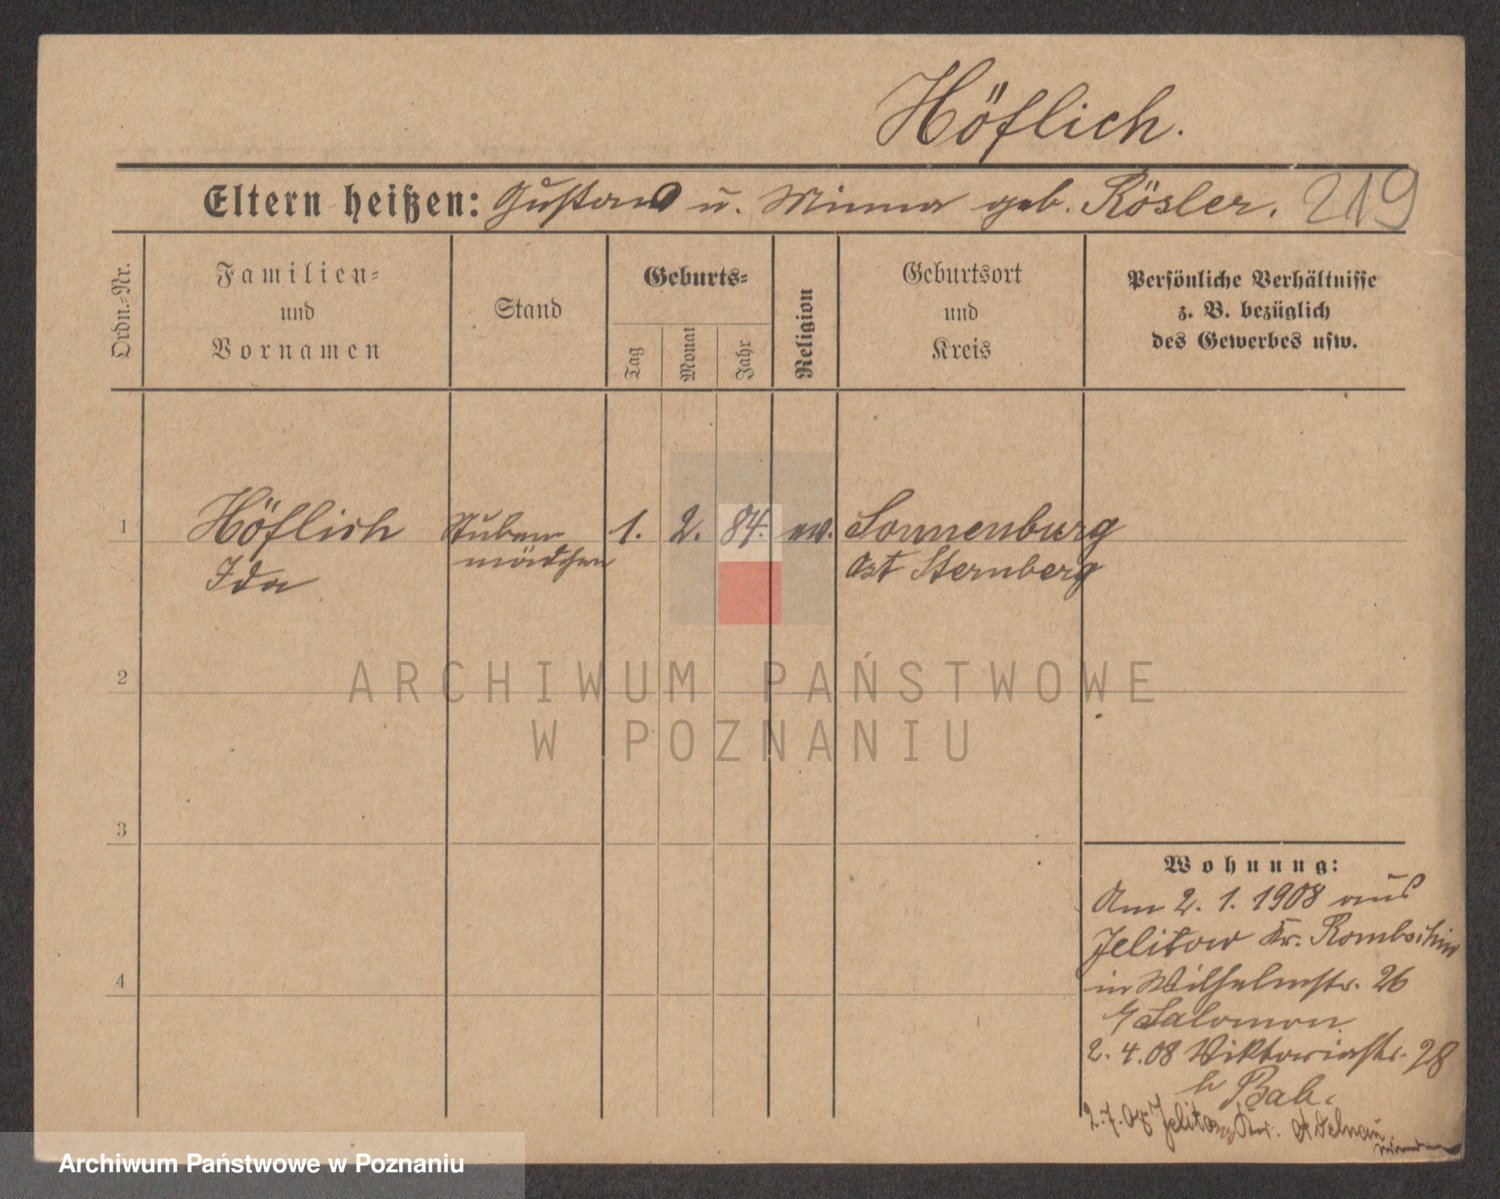 Höflich.
Eltern heißen: Gustav u. Minna geb. Rösler. 219
Ordn.-Nr.
Familien-
und
Vornamen
Stand
Geburts-
Tag
Monat
Jahr
Religion
Geburtsort
und
Kreis
Persönliche Verhältnisse
z. B. bezüglich
des Gewerbes usw.
1 Höflich Stuben 1. 2. 84. ev. Sonnenburg
Ida mädchen Ost Sternberg
2
ARCHIWUM PAŃSTWOWE
W POZNANIU
3
4
Wohnung:
Am 2. 1. 1908 aus
Jelitow Kr.
in Wilhelmstr. 26
Salomon
2. 4. 08 Viktoriastr. 28
b Bab.
2. 7. 08 Kr. Adelnau
Archiwum Państwowe w Poznaniu